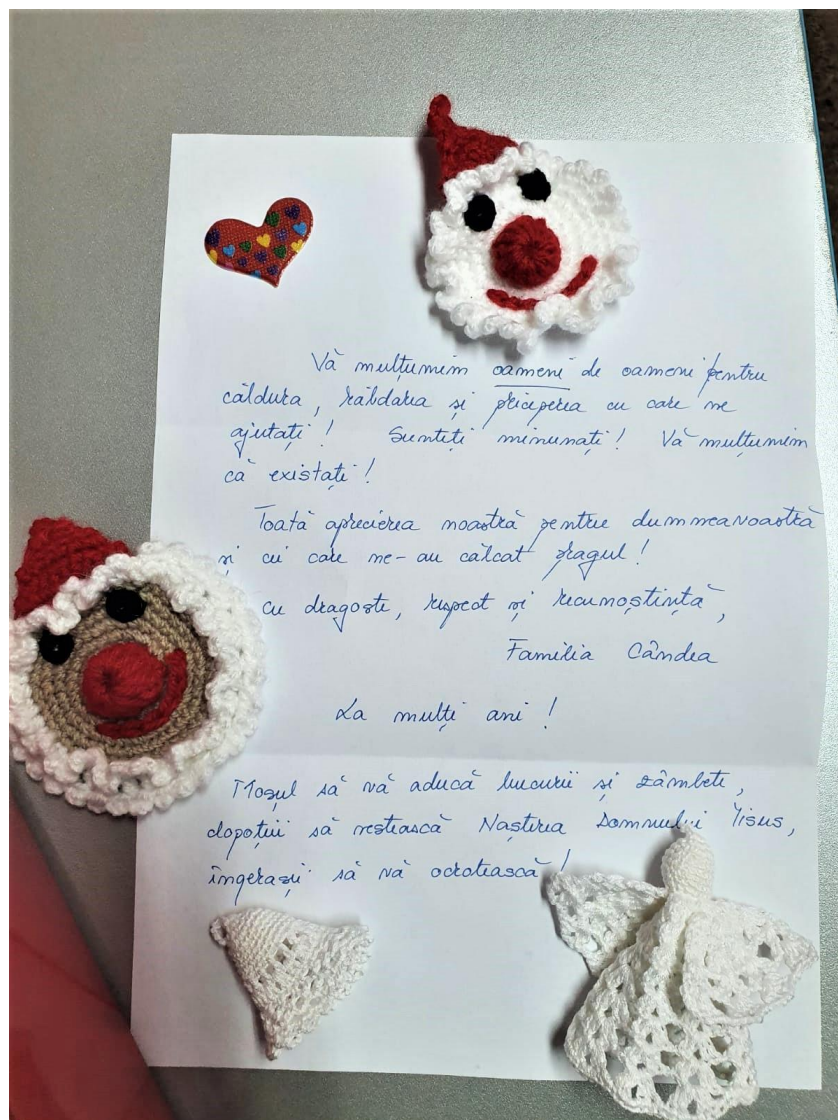 Vă mulțumim oameni de oameni pentru
căldura, răbdarea și priceperea cu care ne
ajutați! Sunteți minunați! Vă mulțumim
că existați!
Toată aprecierea noastră pentru dumneavoastră
și cei care ne-au călcat pragul!
cu dragoste, respect și recunoștință,
Familia Cândea
La mulți ani!
Moșul să vă aducă bucurii și zâmbete,
clopoței să vestească Nașterea Domnului Iisus,
îngerașii să vă ocrotească!